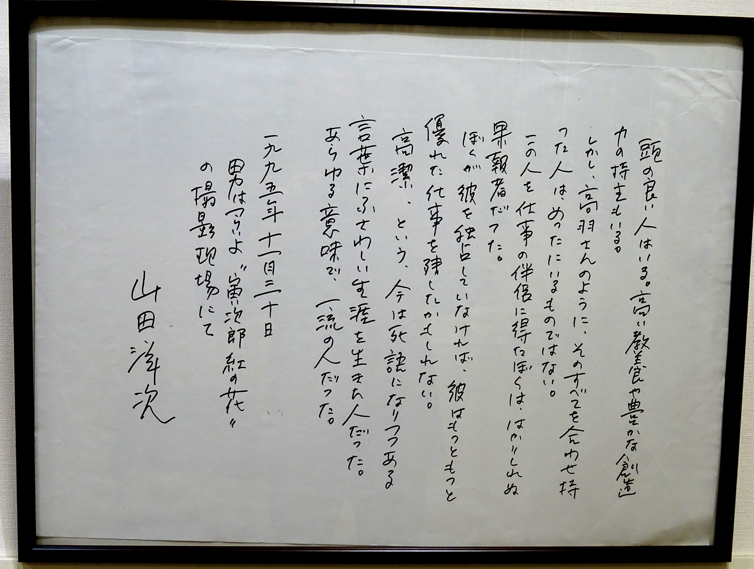 頭の良い人はいる。高い教養や豊かな創造
力の持主もいる。
しかし、高羽さんのように、そのすべてを合わせ持
った人は、めったにいるものではない。
この人を仕事の伴侶に得たぼくは、はかりしれぬ
果報者だった。
ぼくが彼を独占していなければ、彼はもっともっと
優れた仕事を残したかもしれない。
高潔、という、今は死語になりつつある
言葉にふさわしい生涯を生きた人だった。
あらゆる意味で、一流の人だった。
一九九五年十一月三十日
男はつらいよ“寅次郎紅の花”
の撮影現場にて
山田洋次